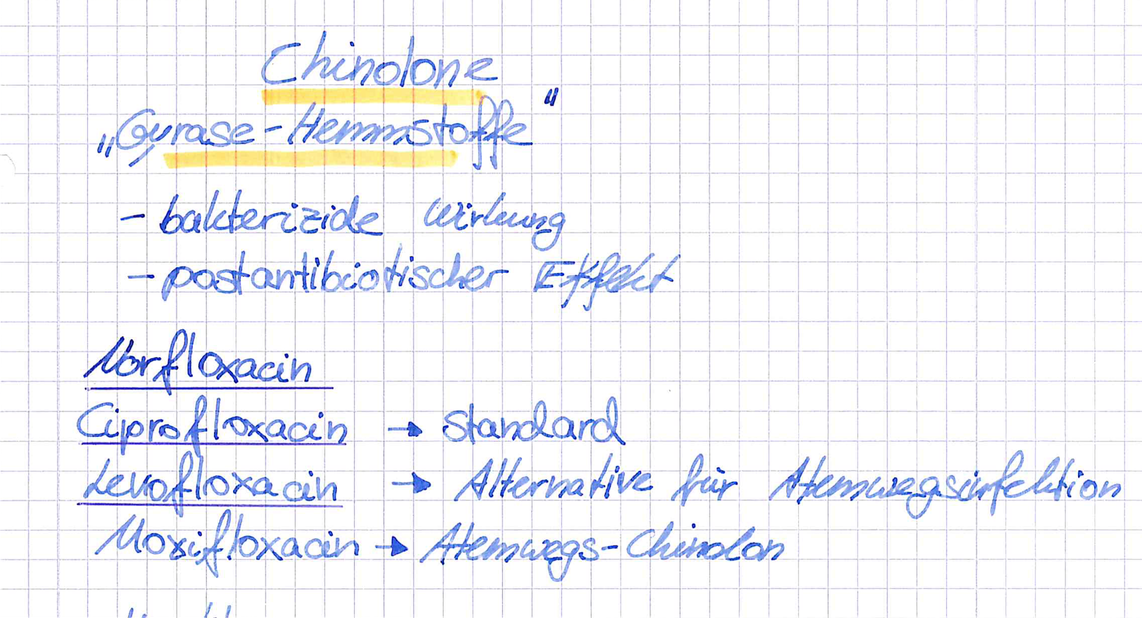 Chinolone
„Gyrase-Hemmstoffe"
- bakterizide Wirkung
- postantibiotischer Effekt
Norfloxacin
Ciprofloxacin → Standard
Levofloxacin → Alternative für Atemwegsinfektion
Moxifloxacin → Atemwegs-Chinolon